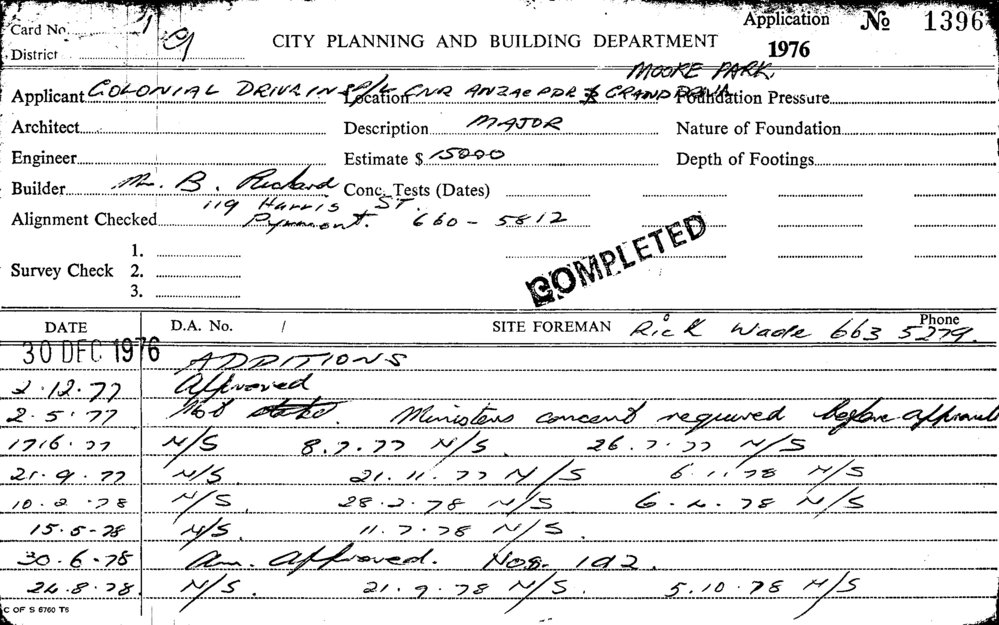 Card No. Application No 1396
District CITY PLANNING AND BUILDING DEPARTMENT 1976
MOORE PARK.
Applicant COLONIAL DRIVE IN P/L Location CNR ANZAC PDE & GRAND DRIVE Foundation Pressure
Architect Description MAJOR Nature of Foundation
Engineer Estimate $ 15000 Depth of Footings
Builder Mr. B. Rickard Conc. Tests (Dates)
119 Harris ST.
Alignment Checked Pyrmont. 660-5812
1.
Survey Check 2.
3.
COMPLETED
DATE D.A. No. / SITE FOREMAN Rick Wade Phone 663 5279.
30 DEC 1976 ADDITIONS
2.12.77 Approved
2.5.77 Not . Ministers concent required before approval
17.6.77 N/S 8.7.77 N/S. 26.7.77 N/S
21.9.77 N/S. 21.11.77 N/S 6.1.78 N/S
10.2.78 N/S. 28.2.78 N/S 6.4.78 N/S
15.5-78 N/S. 11.7.78 N/S.
30.6.78 Am. Approved. Nos. 1&2.
24.8.78. N/S. 21.9.78 N/S. 5.10.78 N/S
C OF S 6760 T6